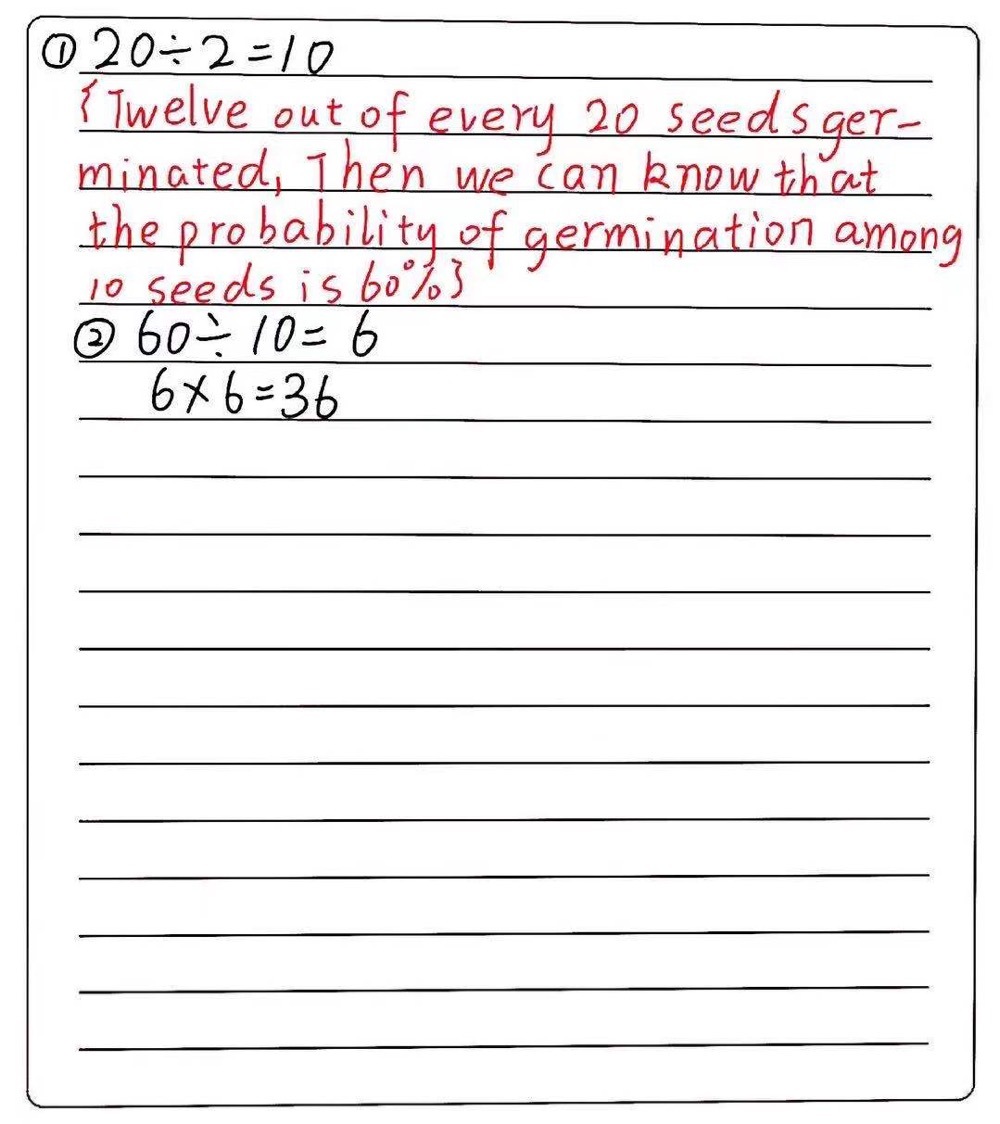 ① 20÷2=10
{Twelve out of every 20 seeds ger-
minated, Then we can know that
the probability of germination among
10 seeds is 60%}
② 60÷10=6
6×6=36